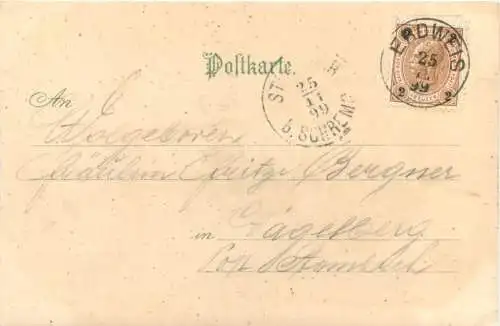 Postkarte.
ERDWEIS
25
11
99
2 2
ST.
25
11
99
B. SCHREMS
An
Wolgeboren
Fräulein Fritzi Bergner
in
Post